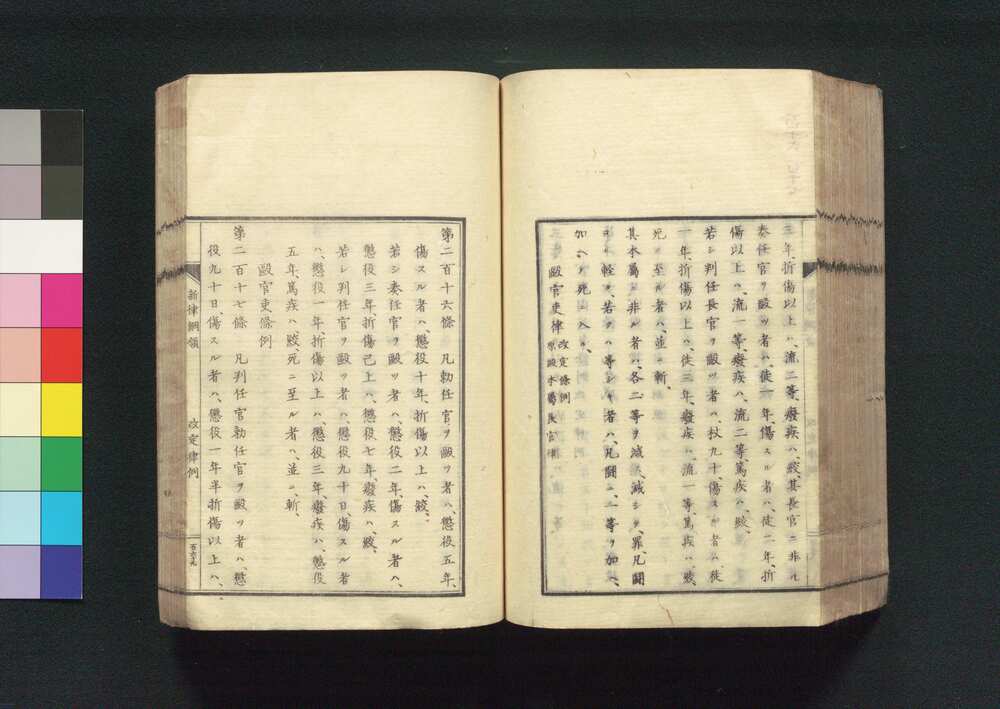 三年、折傷以上ハ、流二等、癈疾ハ、絞、其長官ニ非ル
奏任官ヲ毆ツ者ハ、徒一年、傷スル者ハ、徒二年、折
傷以上ハ、流一等、癈疾ハ、流二等、篤疾ハ、絞、
若シ判任長官ヲ毆ツ者ハ、杖九十、傷スル者ハ、徒
一年、折傷以上ハ、徒三年、癈疾ハ、流一等、篤疾ハ、絞、
死ニ至ル者ハ、並ニ斬、
其本屬ニ非ル者ハ、各二等ヲ減ス、減シテ、罪、凡鬪
ヨリ輕ク、若クハ等シキ者ハ、凡鬪ニ一等ヲ加ヘ、
加ヘテ死ニ入ル、
毆官吏律 改定條例
原毆本屬長官律
第二百十六條 凡勅任官ヲ毆ツ者ハ、懲役五年、
傷スル者ハ、懲役十年、折傷以上ハ、絞、
若シ奏任官ヲ毆ツ者ハ、懲役二年、傷スル者ハ、
懲役三年、折傷已上ハ、懲役七年、癈疾ハ、絞、
若シ判任官ヲ毆ツ者ハ、懲役九十日、傷スル者
ハ、懲役一年、折傷以上ハ、懲役三年、癈疾ハ、懲役
五年、篤疾ハ、絞、死ニ至ル者ハ、並ニ斬、
毆官吏條例
第二百十七條 凡判任官勅任官ヲ毆ツ者ハ、懲
役九十日、傷スル者ハ、懲役一年半、折傷以上ハ、
新律綱領 改定律例